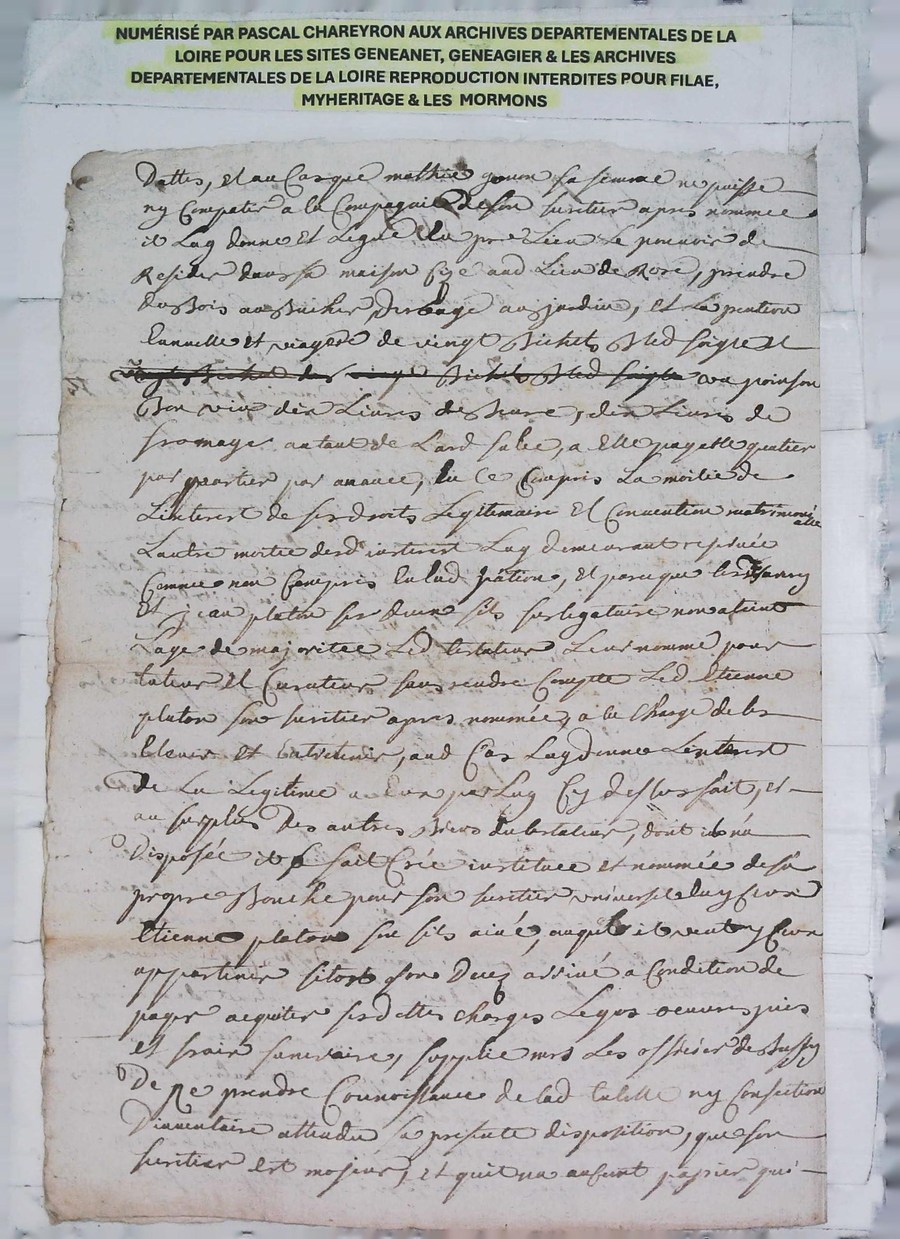 NUMÉRISÉ PAR PASCAL CHAREYRON AUX ARCHIVES DEPARTEMENTALES DE LA
LOIRE POUR LES SITES GENEANET, GENEAGIER & LES ARCHIVES
DEPARTEMENTALES DE LA LOIRE REPRODUCTION INTERDITES POUR FILAE,
MYHERITAGE & LES MORMONS
Dattes, et au Cas que mathie gonon sa femme ne puisse
ny Compatir a la Compagnie de son heritier apres nommee
il Luy donne Et Legue En pre Lieu Le pouvoir de
Resider dans sa maison size aud Lieu de Rore, prendre
du Bois au Bucher, derbage au jardin, et La pention
Eannuelle et viagere de vingt Bichets Bled seigle et
vingt Bichets Bled seigle un poinson
Bon vin dix Livres de Beure, dix Livres de
fromage autant de Lard salee, a Elle payable quatier
par quartier par avance, En Ce Compris La moitie de
Linterest de ses droits Legitimaire Et Convention matrimoniale
Lautre moitie desd interest Luy demeurant reservée
Comme non Compris En lad pention, et parce que les
Et jean platon ses deux fils ses legataire non atteint
Lage de majoritee Led testateur Leur nomme pour
tuteur et Curateur sans rendre Compte Led Etienne
platon son heritier apres nommée, a la Charge de les
Elever et Entretenir, aud Cas Luy donne Lenterest
de La Legitime a Eux par Luy Cy dessus fait, et
au surplus Des autres Biens du testateur, dont il n'a
Disposée il a fait Crée institue et nommée de sa
propre Bouche pour son heritier universel
Etienne platon son fils ainé, auquel il veut
appartenir sitost son Deces arrivé a Condition de
payer acquiter ses dettes charges Legas oeuvres pies
et frais funeraire, supplie mrs Les officier de Bussy
De Ne prendre Connoissance de lad tutelle ny Confection
D'inventaire attendu sa presente disposition, que son
heritier est majeur, et quil n'a aucunt papier qui